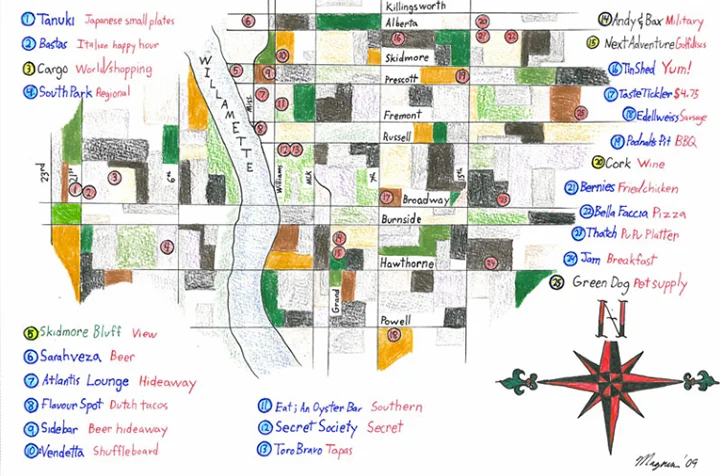 ① Tanuki Japanese small plates
② Bastas Italian happy hour
③ Cargo World/shopping
④ South Park Regional
Killingsworth
Alberta
Skidmore
Prescott
Fremont
Russell
Broadway
Burnside
Hawthorne
Powell
WILLAMETTE
23rd
21st
6th
Miss.
Williams
MLK
7th
15th
Grand
⑭ Andy & Bax Military
⑮ Next Adventure Golf discs
⑯ Tin Shed Yum!
⑰ Taste Tickler $4.75
⑱ Edelweiss Sausage
⑲ Podnah's Pit BBQ
⑳ Cork Wine
㉑ Bernies Fried chicken
㉒ Bella Faccia Pizza
Thatch Pu Pu Platter
㉔ Jam Breakfast
㉕ Green Dog Pet supply
⑤ Skidmore Bluff View
⑥ Sarahveza Beer
⑦ Atlantis Lounge Hideaway
⑧ Flavour Spot Dutch tacos
⑨ Sidebar Beer hideaway
⑩ Vendetta Shuffleboard
⑪ Eat; An Oyster Bar Southern
⑫ Secret Society Secret
⑬ Toro Bravo Tapas
N
'09